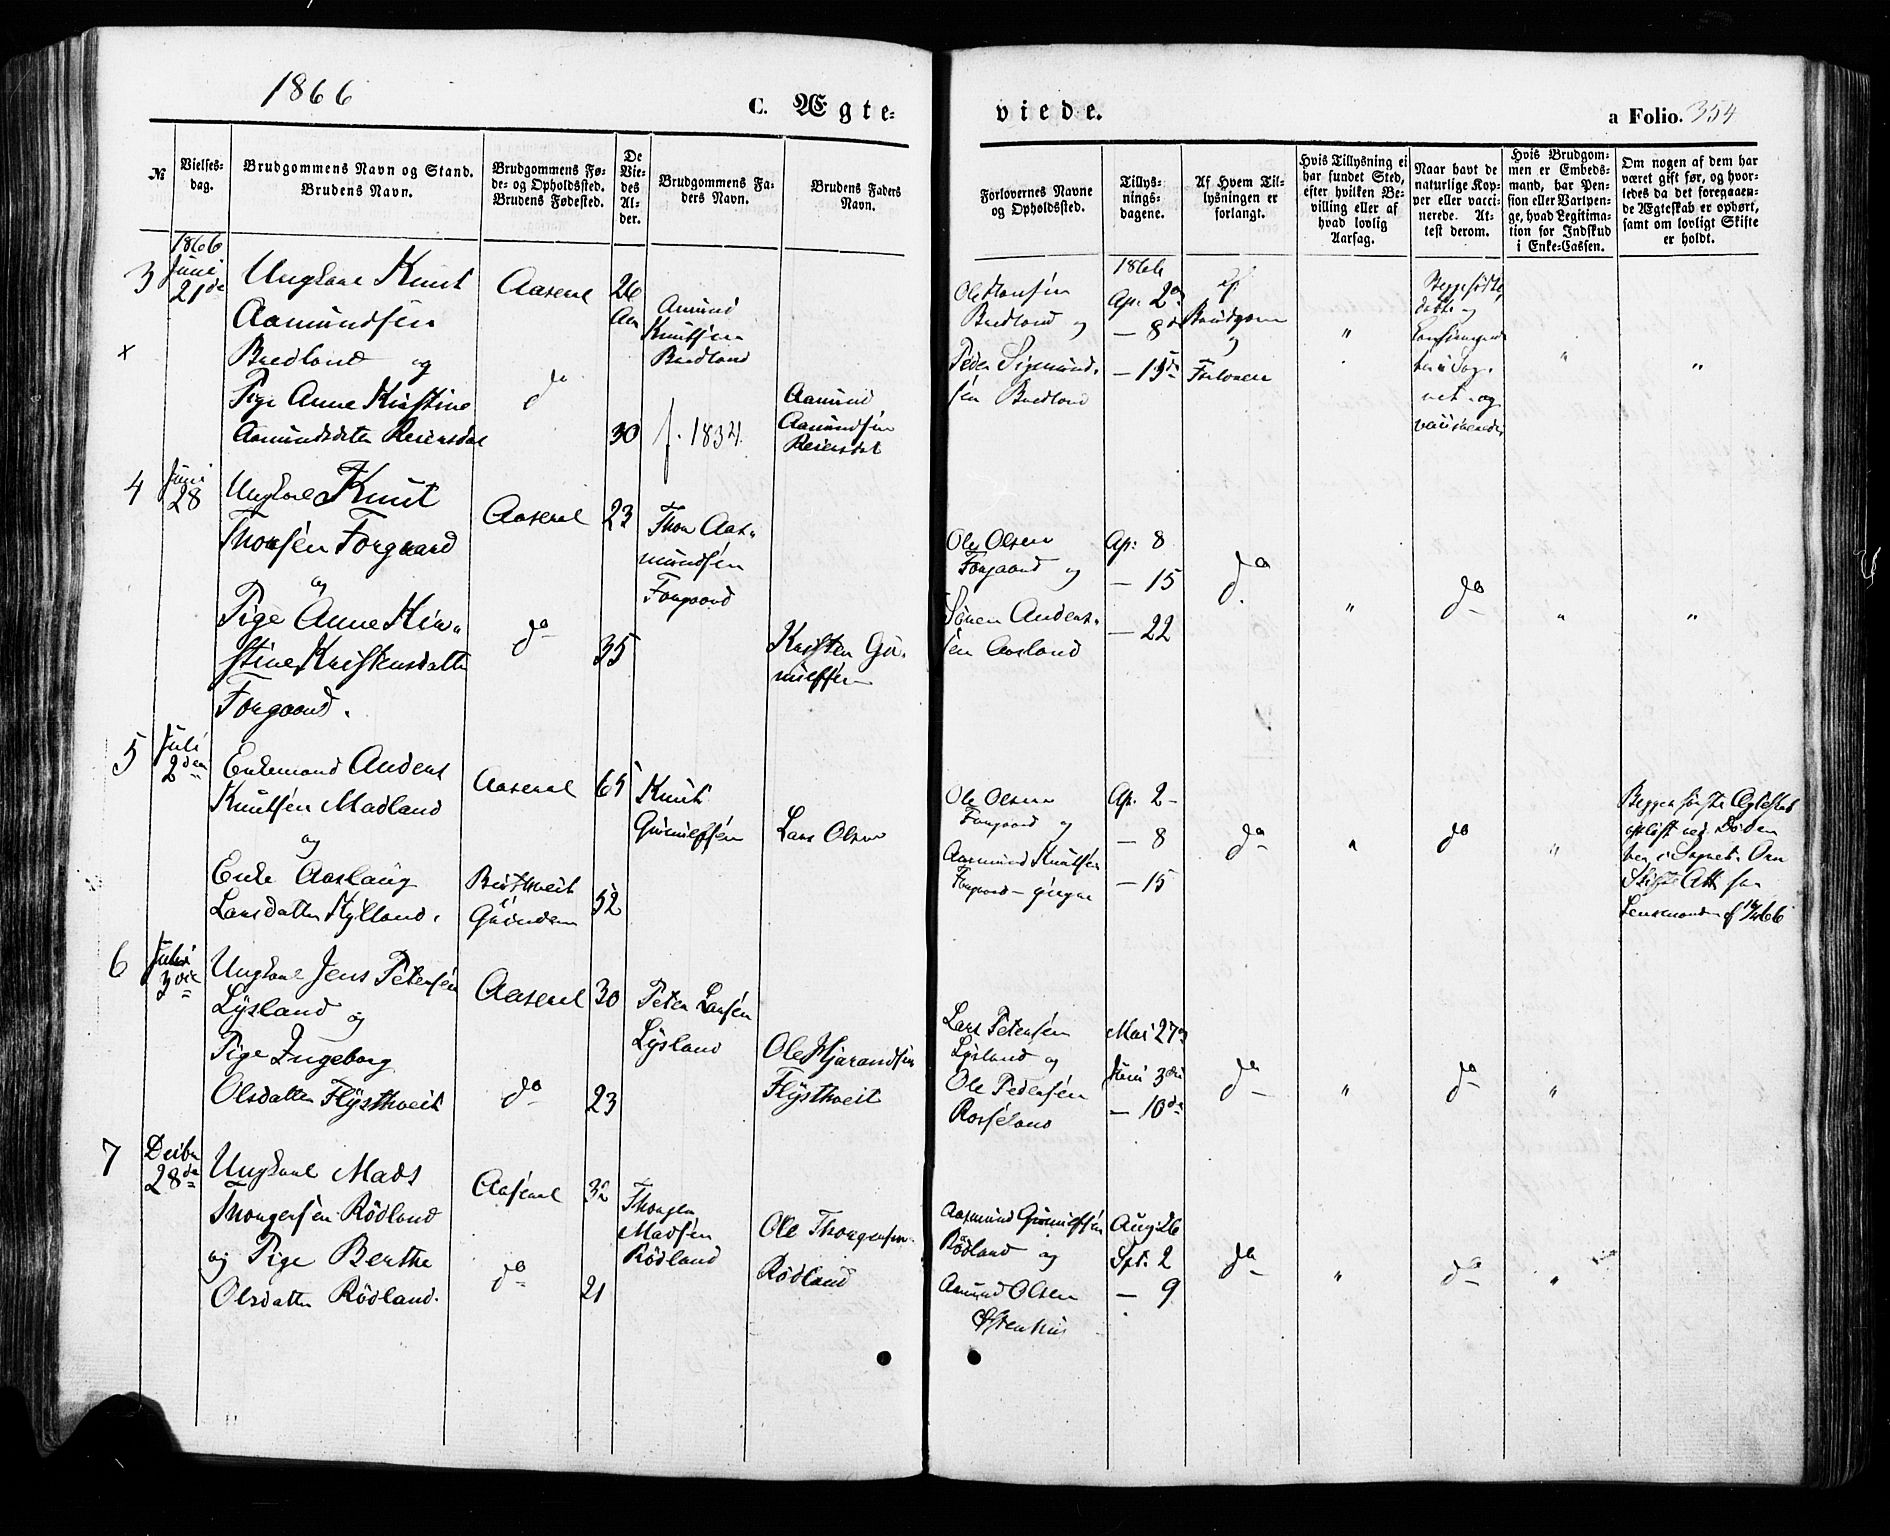 1866
C. Ægte-
viede.
a Folio. 354
№
Vielses-
dag.
Brudgommens Navn og Stand.
Brudens Navn.
Brudgommens Fø-
de- og Opholdssted.
Brudens Fødested.
De
Vie-
des
Al-
der.
Brudgommens Fa-
ders Navn.
Brudens Faders
Navn.
Forlovernes Navne
og Opholdssted.
Tillys-
nings-
dagene.
Af Hvem Til-
lysningen er
forlangt.
Hvis Tillysning ei
har fundet Sted,
efter hvilken Be-
villing eller af
hvad lovlig
Aarsag.
Naar havt de
naturlige Kop-
per eller vacci-
nerede. At-
test derom.
Hvis Brudgom-
men er Embeds-
mand, har Pen-
sion eller Vartpen-
ge, hvad Legitima-
tion for Indskud
i Enke-Cassen.
Om nogen af dem har
været gift før, og hvor-
ledes da det foregaaen-
de Ægteskab er ophørt,
samt om lovligt Skifte
er holdt.
3
1866
Juni
21de
x
Ungkarl Knut
Aamundsen
Bredland og
Pige Anne Kirstine
Aamundsdatter Reiersdal
Aaseral
do
26
Aar
30
Amund
Knutsen
Bredland
f. 1834
Aamund
Aamundsen
Reiersdal
Ole Hansen
Bredland og
Peder Sigmund-
sen Bredland
1866
Apr. 2
— 8de
— 15de
af
Brudgom
og
Forlover
"
Begge fødte,
døbte og
ber i Sog-
net og
vaccinerede
"
"
4
Juni
28
Ungkarl Knut
Thorsen Forgaard
og
Pige Anne Kir-
stine Kristensdatter
Forgaard.
Aaseral
do
23
35
Thor Aas-
mundsen
Forgaard
Kristen Gu-
nulfsen
Ole Olsen
Forgaard og
Søren Anders-
sen Aasland
Ap: 8
— 15
— 22
do
"
do
"
"
5
Juli
2den
Enkemand Anders
Knutsen Madland
og
Enke Aaslaug
Larsdatter Kylland.
Aaseral
i
65
52
Knut
Gunulfsen
Lars Olsen
Ole Olsen
Forgaard og
Aasmund Knutsen
Forgaard
Ap. 2
— 8
— 15
do
"
do
"
Begges første Ægteskab
opløst ved Døden
her i Sognet. Om
Skifte Att fra
Lensmanden af
6
Juli
3die
Ungkarl Jens Petersen
Lysland og
Pige Ingeborg
Olsdatter Flysthveit
Aaseral
do
30
23
Peter Larsen
Lysland
Ole Hjarandsen
Flysthveit
Lars Petersen
Lysland og
Ole Pedersen
Rosseland
Mai 27
Juni 3die
— 10de
do
"
do
"
7
Decbr
28de
Ungkarl Mads
Thorgersen Rödland
og Pige Berthe
Olsdatter Rödland.
Aaseral
do
32
21
Thorger
Madsen
Rödland
Ole Thorgersen
Rödland
Aasmund Gunulfsen
Rödland og
Aamund Olsen
Østenhus
Aug: 26
Spt. 2
— 9
do
"
do
"